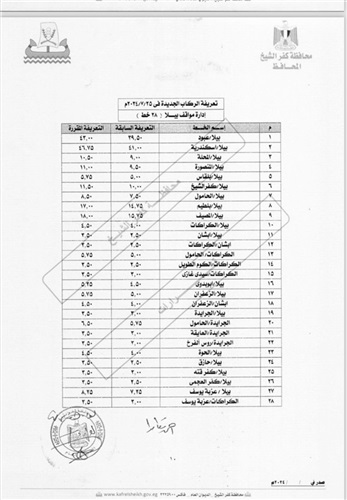 محافظة كفر الشيخ
المحافظ
تعريفة الركاب الجديدة فى ٢٠٢٤/٧/٢٥م
إدارة مواقف بيلا ( ٢٨ خط )
م إسم الخط التعريفة السابقة التعريفة المقررة
١ بيلا/عبود ٣٩,٥٠ ٤٣,٠٠
٢ بيلا/اسكندرية ٤١,٠٠ ٤٦,٧٥
٣ بيلا/المحلة ٩,٠٠ ١٠,٥٠
٤ بيلا/المنصورة ٩,٥٠ ١١,٠٠
٥ بيلا/بلقاس ٥,٠٠ ٥,٧٥
٦ بيلا/كفرالشيخ ١٠,٠٠ ١١,٥٠
٧ بيلا/الحامول ٧,٥٠ ٨,٥٠
٨ بيلا/بلطيم ١٤,٧٥ ١٧,٠٠
٩ بيلا/المصيف ١٥,٧٥ ١٨,٠٠
١٠ بيلا/الكراكات ٤,٠٠ ٤,٥٠
١١ بيلا/ابشان ٣,٠٠ ٣,٥٠
١٢ ابشان/الكراكات ٣,٥٠
١٣ الكراكات/الحامول ٥,٠٠ ٥,٧٥
١٤ الكراكات/الكوم الطويل ٣,٥٠
١٥ الكراكات/سيدى غازى ٣,٥٠
١٦ بيلا/ابوبدوى ٤,٥٠ ٥,٢٥
١٧ بيلا/الزعفران ٥,٠٠ ٥,٧٥
١٨ ابشان/الزعفران ٤,٠٠ ٤,٥٠
١٩ بيلا/الجرايدة ٣,٠٠ ٣,٥٠
٢٠ الجرايدة/الحامول ٥,٧٥ ٦,٥٠
٢١ الجرايدة/ ٣,٠٠ ٣,٥٠
٢٢ الجرايدة/روس الفرخ ٣,٠٠ ٣,٥٠
٢٣ بيلا/الحوة ٤,٠٠ ٤,٥٠
٢٤ بيلا/حازق ٣,٠٠ ٣,٥٠
٢٥ بيلا/كفر قته ٣,٠٠ ٣,٥٠
٢٦ بيلا/كفر العجمى ٣,٠٠ ٣,٥٠
٢٧ بيلا/ عزبة يوسف ٧,٢٥ ٨,٢٥
٢٨ الكراكات/عزبة يوسف ٣,٠٠ ٣,٥٠
١٠
صدر فى / / ٢٠٢٤م
محافظة كفر الشيخ - الديوان العام
http://www.kafrelsheikh.gov.eg